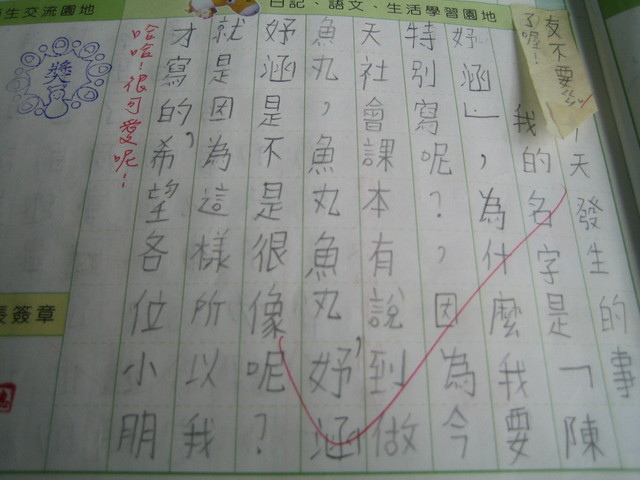 日記、語文、生活學習園地
生交流園地
天發生的事
我的名字是「陳
妤涵」，為什麼我要
特別寫呢？，因為今
天社會課本有說到做
魚丸，魚丸魚丸，妤涵
妤涵是不是很像呢？
就是因為這樣所以我
才寫的，希望各位小朋
友不要
了喔！
哈哈！很可愛呢！
獎
簽章